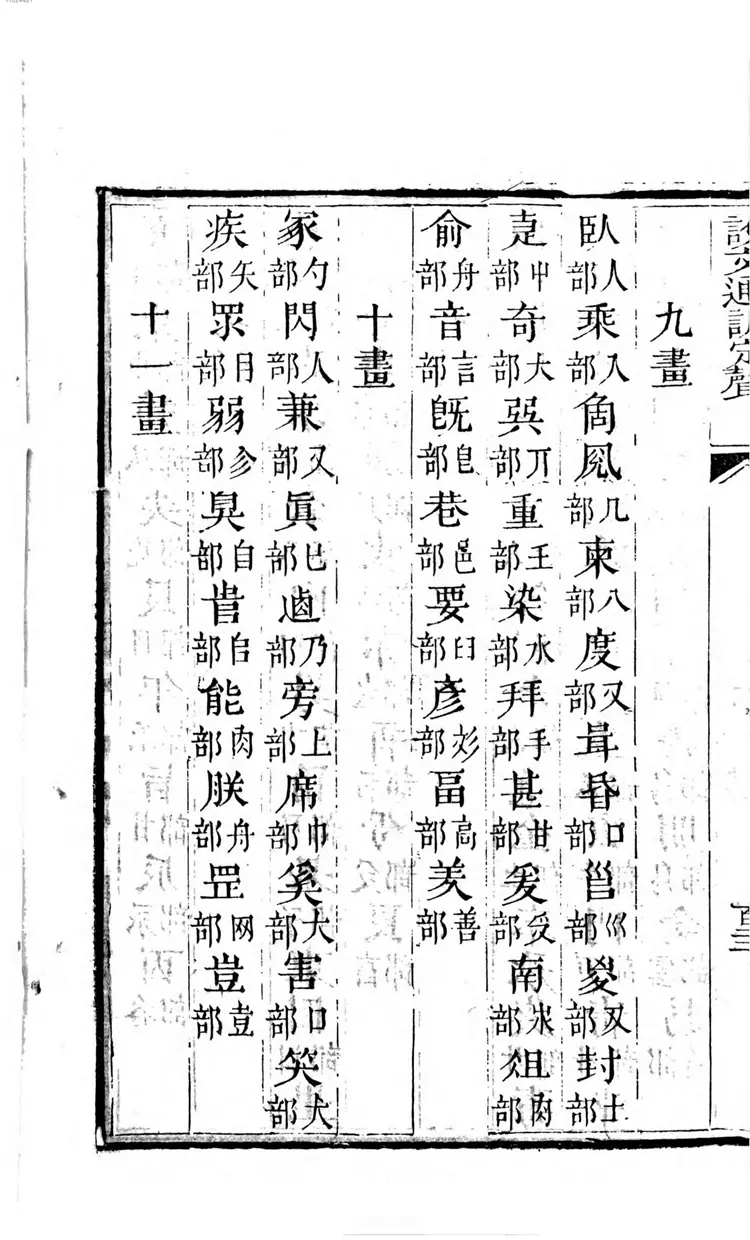 說文通訓定聲
百二
九畫
臥人部乘入部㑋風几部柬八部度又部咠昏口部邕巛部叟又部封土部
壴屮部奇大部巺丌部重王部染水部拜手部甚甘部爰𠬪部南𣎵部俎肉部
俞舟部音言部旣皀部巷邑部要臼部彥彣部畐高部羑善部
十畫
冢勹部閃人部兼又部眞匕部逌乃部旁上部席巾部奚大部害口部笑犬部
疾矢部眔目部弱彡部臭自部𥄎㠯部能肉部朕舟部罡网部豈壴部
十一畫